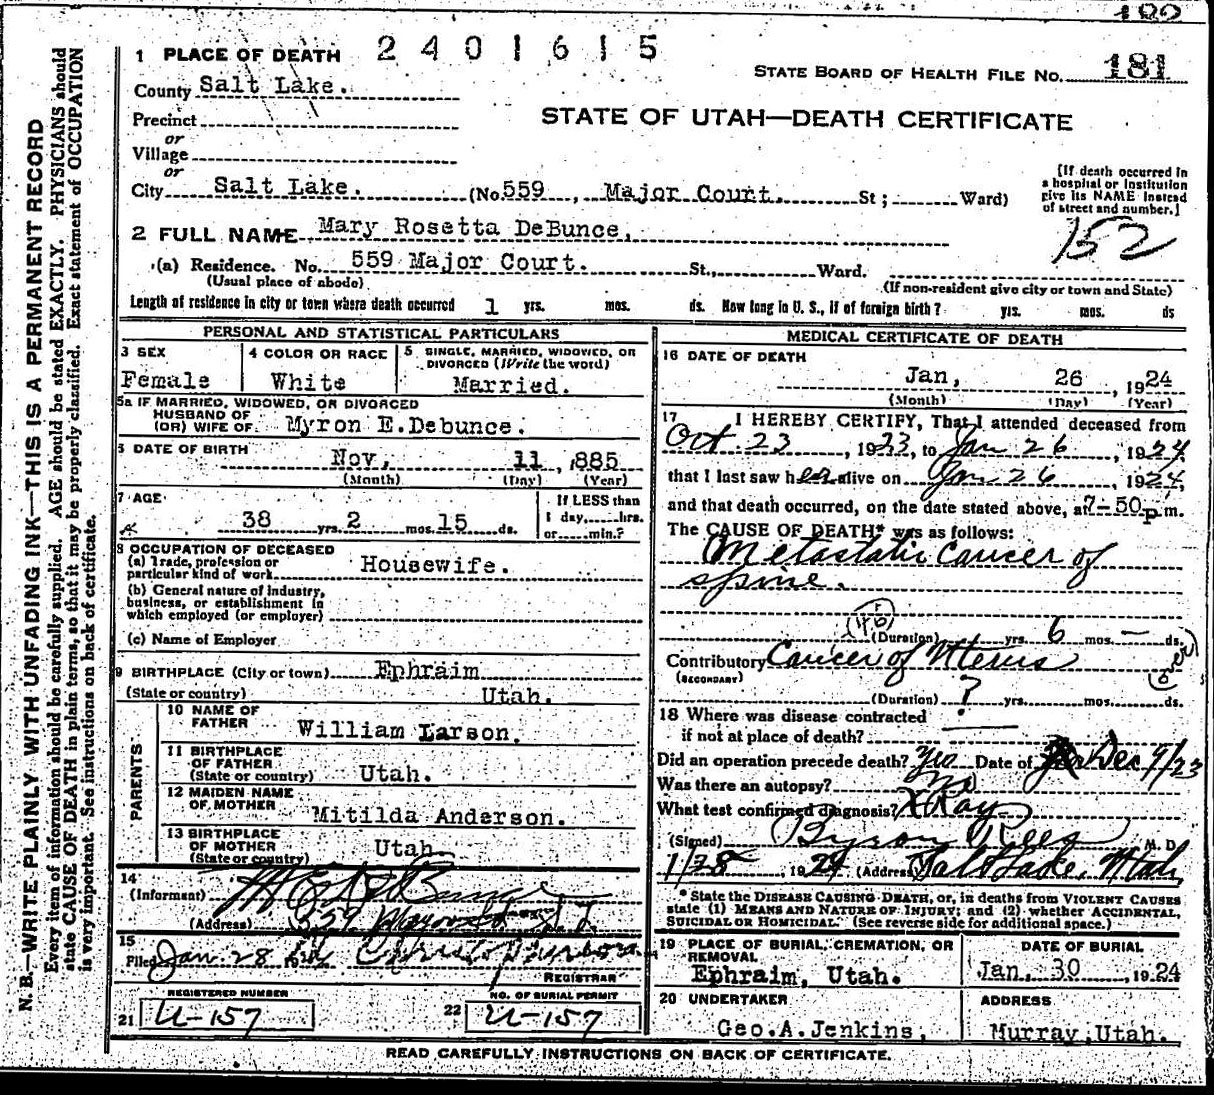 2401615
1 PLACE OF DEATH
STATE BOARD OF HEALTH FILE NO. 181
County Salt Lake.
STATE OF UTAH—DEATH CERTIFICATE
Precinct
or
Village
or
City Salt Lake. (No. 559, Major Court. St; Ward)
[If death occurred in a hospital or institution give its NAME instead of street and number.]
2 FULL NAME Mary Rosetta DeBunce,
152
(a) Residence. No. 559 Major Court. St., Ward.
(Usual place of abode)
(If non-resident give city or town and State)
Length of residence in city or town where death occurred 1 yrs. mos. ds. How long in U. S., if of foreign birth? yrs. mos. ds
PERSONAL AND STATISTICAL PARTICULARS
3 SEX
Female
4 COLOR OR RACE
White
5 SINGLE, MARRIED, WIDOWED, OR DIVORCED (Write the word)
Married.
5a IF MARRIED, WIDOWED, OR DIVORCED
HUSBAND OF
(OR) WIFE OF. Myron E.Debunce.
6 DATE OF BIRTH
Nov, 11 ,885
(Month) (Day) (Year)
7 AGE
38 yrs. 2 mos. 15 ds.
If LESS than
1 day, hrs.
or min.?
8 OCCUPATION OF DECEASED
(a) Trade, profession or
particular kind of work Housewife.
(b) General nature of industry,
business, or establishment in
which employed (or employer)
(c) Name of Employer
9 BIRTHPLACE (City or town) Ephraim
(State or country) Utah.
PARENTS
10 NAME OF FATHER
William Larson.
11 BIRTHPLACE OF FATHER
(State or country) Utah.
12 MAIDEN NAME OF MOTHER
Mitilda Anderson.
13 BIRTHPLACE OF MOTHER
(State or country) Utah
14
(Informant) M E De Bunce
(Address) 559 Major
15
Filed Jan. 28
REGISTRAR
REGISTERED NUMBER
21 U-157
NO. OF BURIAL PERMIT
22 U-157
MEDICAL CERTIFICATE OF DEATH
16 DATE OF DEATH
Jan, 26 , 1924
(Month) (Day) (Year)
17 I HEREBY CERTIFY, That I attended deceased from
Oct. 23, 1923, to Jan 26, 1924,
that I last saw her alive on Jan 26, 1924,
and that death occurred, on the date stated above, at 7-50 p.m.
The CAUSE OF DEATH* was as follows:
Metastatic Cancer of
spine.
(46)
(Duration) yrs. 6 mos. — ds.
Contributory Cancer of Uterus
(SECONDARY)
(Duration) ? yrs. mos. ds.
18 Where was disease contracted
if not at place of death?
Did an operation precede death? Yes Date of Dec 9/23
Was there an autopsy? no
What test confirmed diagnosis? X Ray
(Signed) Byron Rees M. D.
1/28, 1924 (Address) Salt Lake, Utah
* State the DISEASE CAUSING DEATH, or, in deaths from VIOLENT CAUSES
state (1) MEANS AND NATURE OF INJURY; and (2) whether ACCIDENTAL,
SUICIDAL OR HOMICIDAL. (See reverse side for additional space.)
19 PLACE OF BURIAL, CREMATION, OR REMOVAL
Ephraim, Utah.
DATE OF BURIAL
Jan, 30 , 1924
20 UNDERTAKER
Geo.A.Jenkins,
ADDRESS
Murray,Utah.
READ CAREFULLY INSTRUCTIONS ON BACK OF CERTIFICATE.
N. B.—WRITE PLAINLY WITH UNFADING INK—THIS IS A PERMANENT RECORD
Every item of information should be carefully supplied. AGE should be stated EXACTLY. PHYSICIANS should
state CAUSE OF DEATH in plain terms, so that it may be properly classified. Exact statement of OCCUPATION
is very important. See instructions on back of certificate.